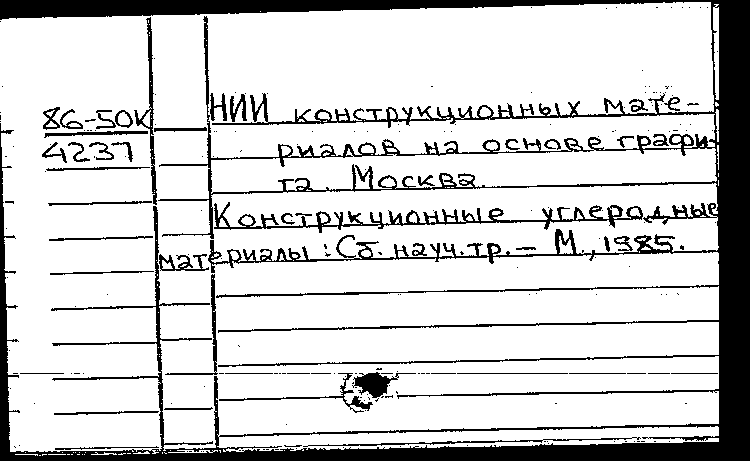 86-50К
4237
НИИ конструкционных мате-
риалов на основе графи-
та. Москва.
Конструкционные углеродные
материалы : Сб. науч. тр. – М., 1985.